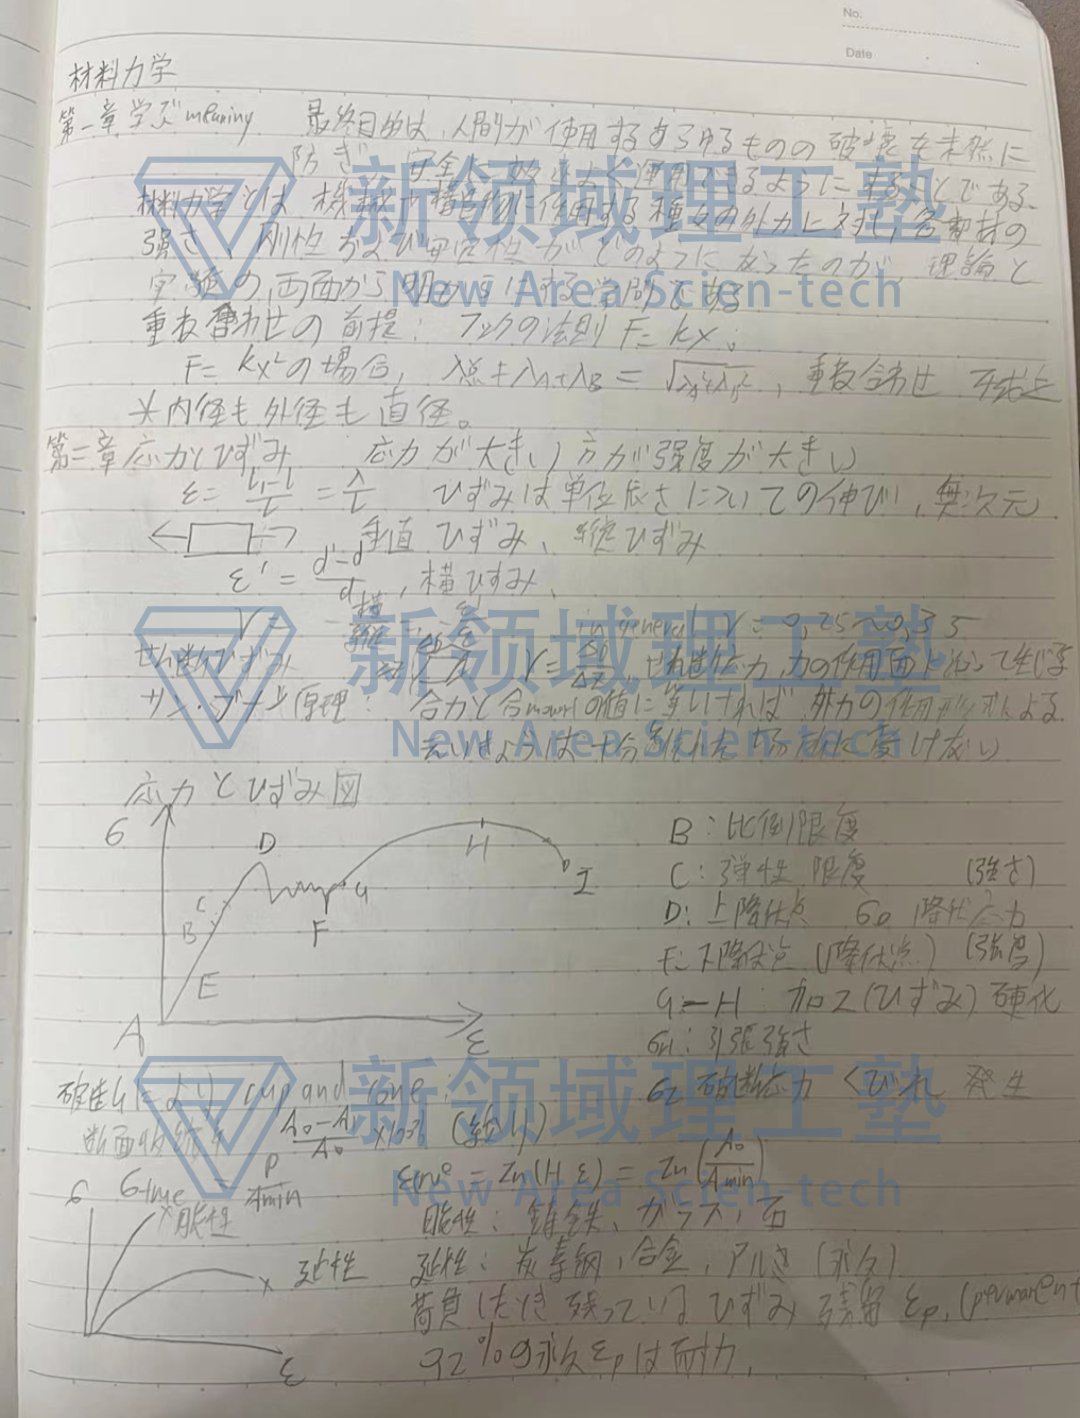 No.
Date
材料力学
第一章 学ぶmeaning 最終目的は、人間が使用するあらゆるものの破壊を未然に
防ぎ、安全に効率よく運用できるようにすることである。
材料力学とは 機械や構造物に作用する種々の外力に対し、各部材の
強さ、剛性および安定性がどのようになったのか、理論と
実験の両面から明らかにする学問である
重ね合わせの前提: フックの法則 F=kx。
F=kx²の場合, 重ね合わせ
内径も外径も直径。
第二章 応力とひずみ 応力が大きい方が強度が大きい
ε= = λ/l ひずみは単位長さについての伸び, 無次元
垂直ひずみ、縦ひずみ
ε' = (d'-d)/d, 横ひずみ、
in general ν = 0.25~0.35
せん断ひずみ せん断応力, 力の作用面に沿って生じる
サン・ブナン原理: 合力と合momentの値に等しければ 外力の作用形式による
応力とひずみ図
σ D H I G C B F E A ε
B: 比例限度
C: 弾性限度 (強さ)
D: 上降伏点 降伏応力
F: 下降伏点 (降伏点) (強度)
G-H: 加工(ひずみ)硬化
σH: 引張強さ
cup and cone: 破断応力 くびれ 発生
断面収縮率 (A₀-A)/A₀ ×100% (絞り)
σtrue = P/Amin = ln(1+ε) = ln(A₀/Amin)
σ 脆性 延性 ε
脆性: 鋳鉄, ガラス, 石
延性: 炭素鋼, 合金, アルミ (永久)
荷負したとき 残っている ひずみ 残留 εp, (permanent
永久εpは耐力.
新领域理工塾
New Area Scien-tech
新领域理工塾
New Area Scien-tech
新领域理工塾
New Area Scien-tech